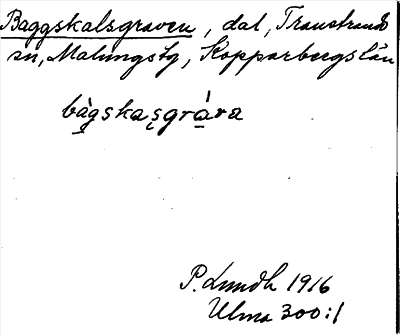 Baggskalsgraven, dal, Transtrands
sn, Malungs tg, Kopparbergs län
bàgskasgrára
P. Lundh 1916
Ulma 300:1